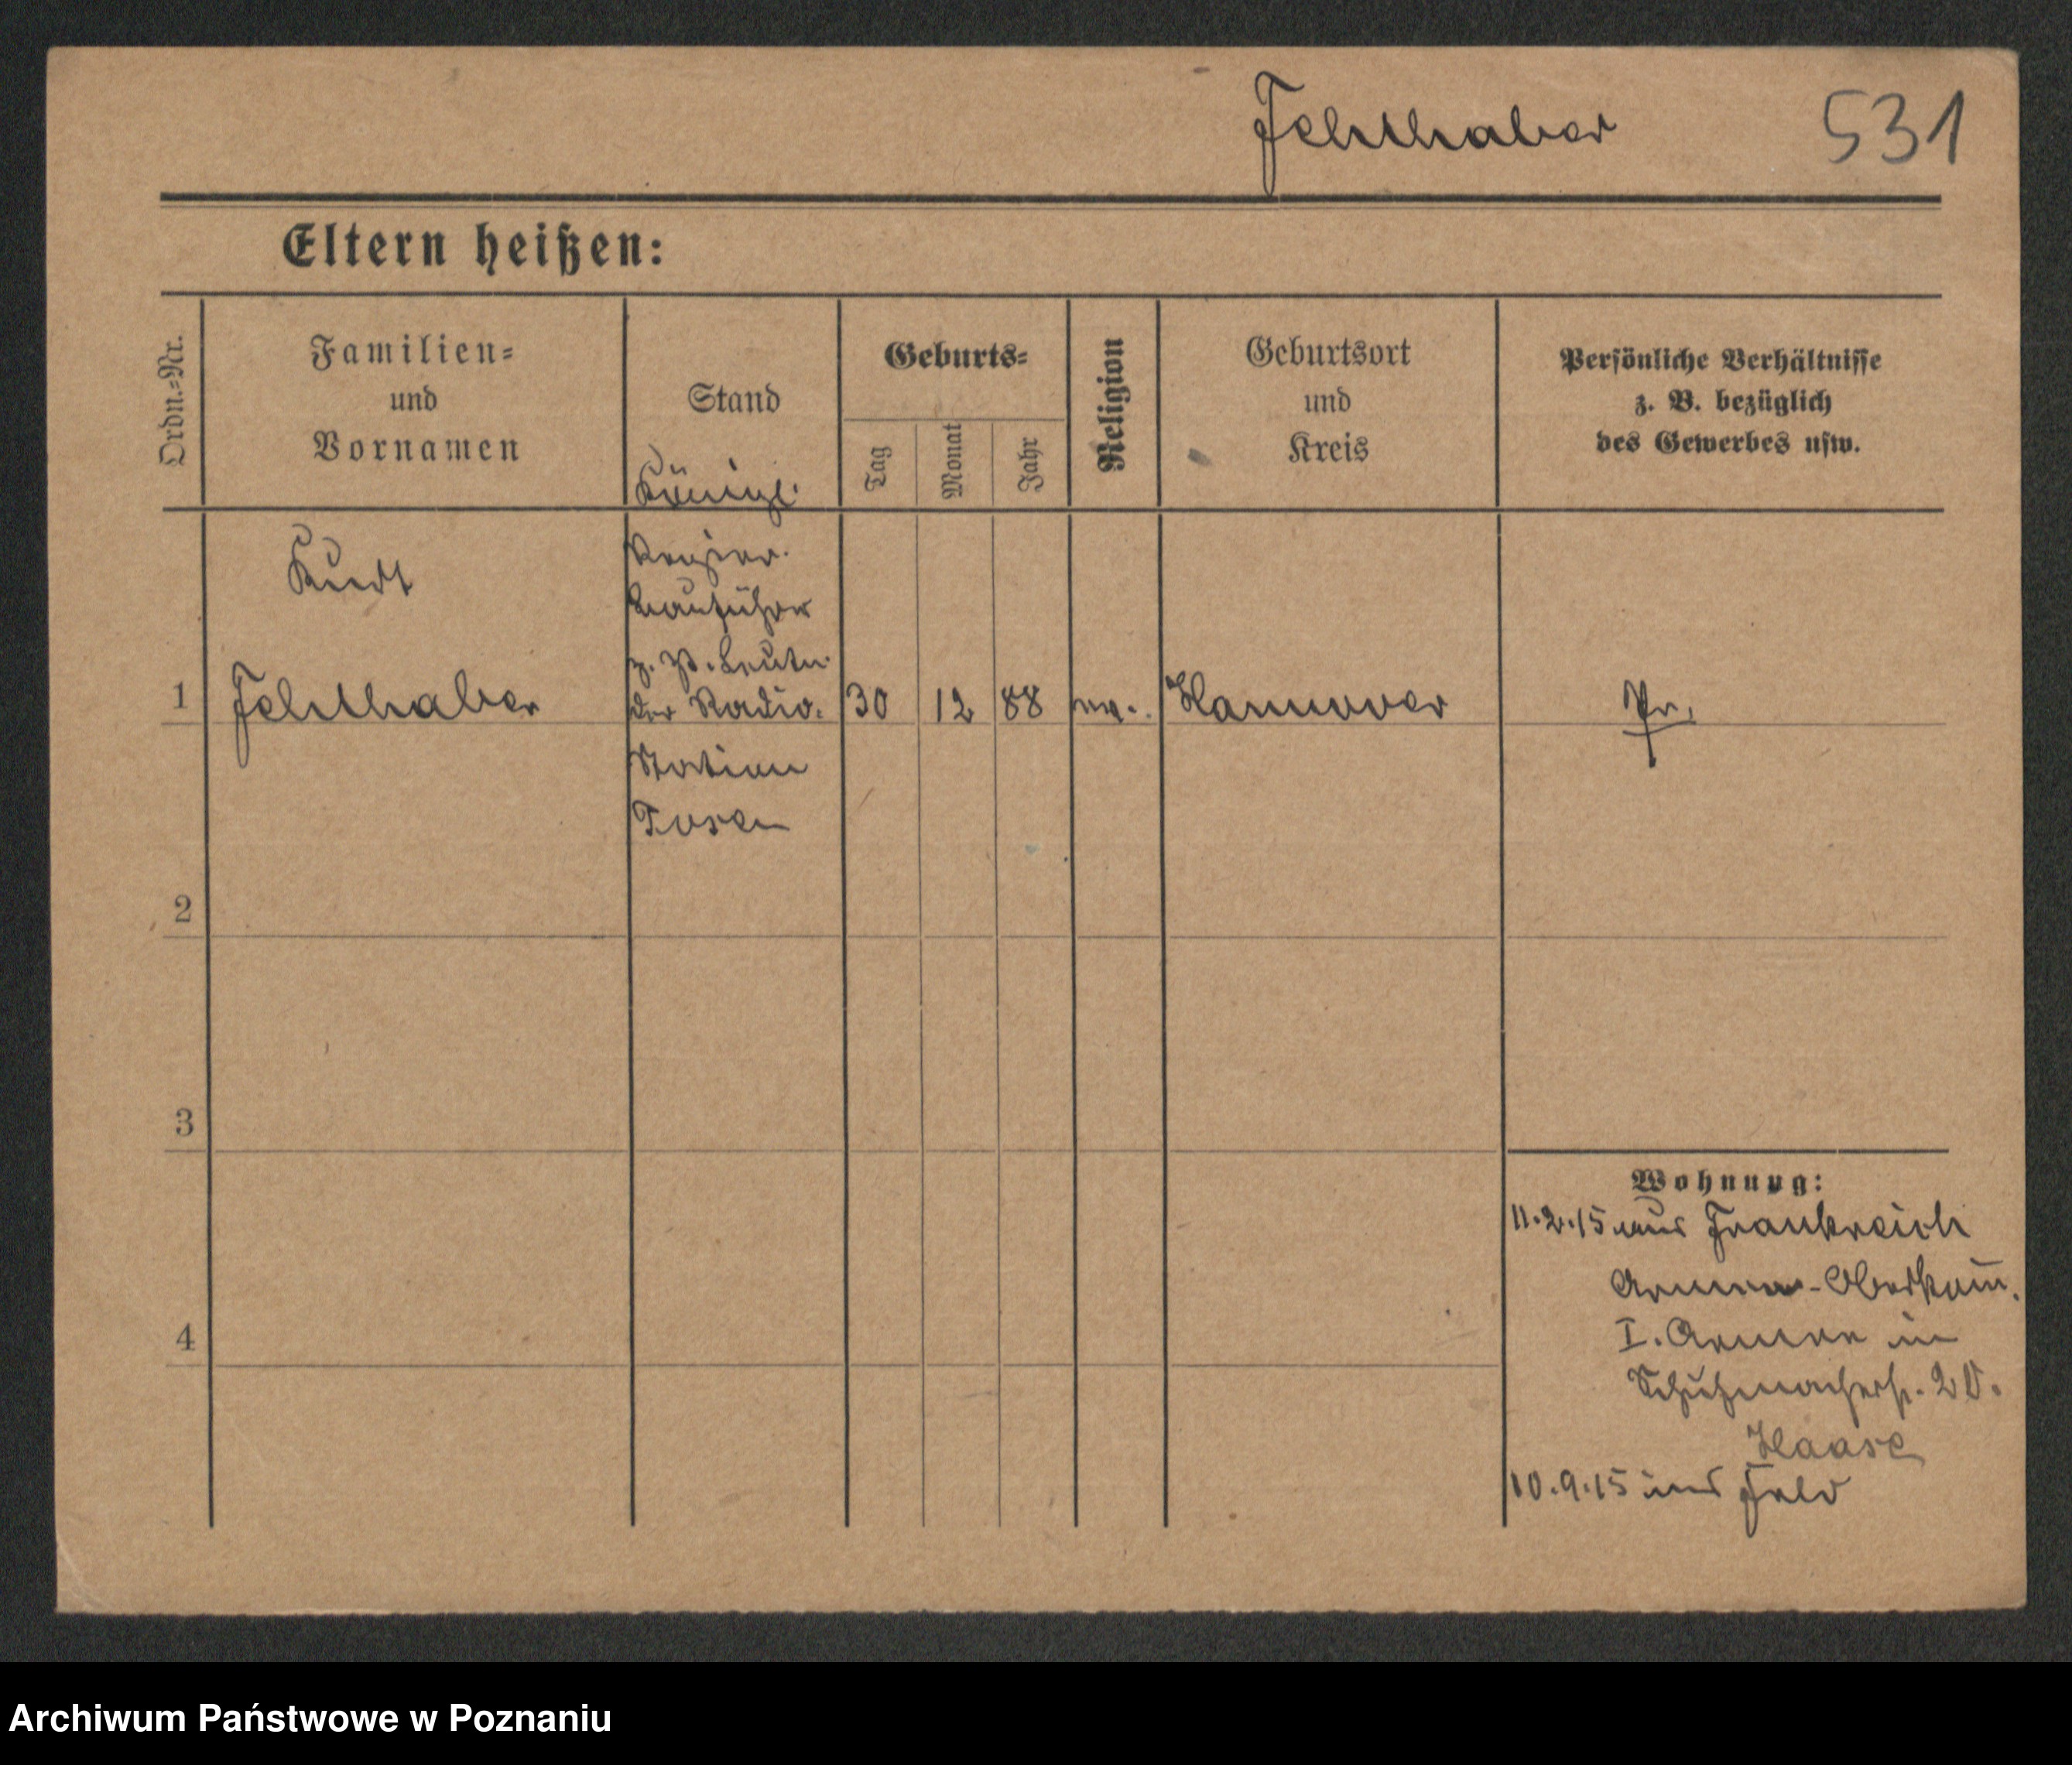 Fehlhaber 531
Eltern heißen:
Ordn.-Nr.
Familien-
und
Vornamen
Stand
Geburts-
Tag
Monat
Jahr
Religion
Geburtsort
und
Kreis
Persönliche Verhältnisse
z. B. bezüglich
des Gewerbes usw.
Königl.
Kurt
Regier.
bauführer
z. Z. Leutn.
1 Fehlhaber der Radio- 30 12 88 ev. Hannover Pr.
Station
Posen
2
3
Wohnung:
11.2.15 aus Frankreich
Armee-Oberkom.
4 I. Armee in
Schuhmacherstr. 20.
Haase
10.9.15 ins Feld
Archiwum Państwowe w Poznaniu